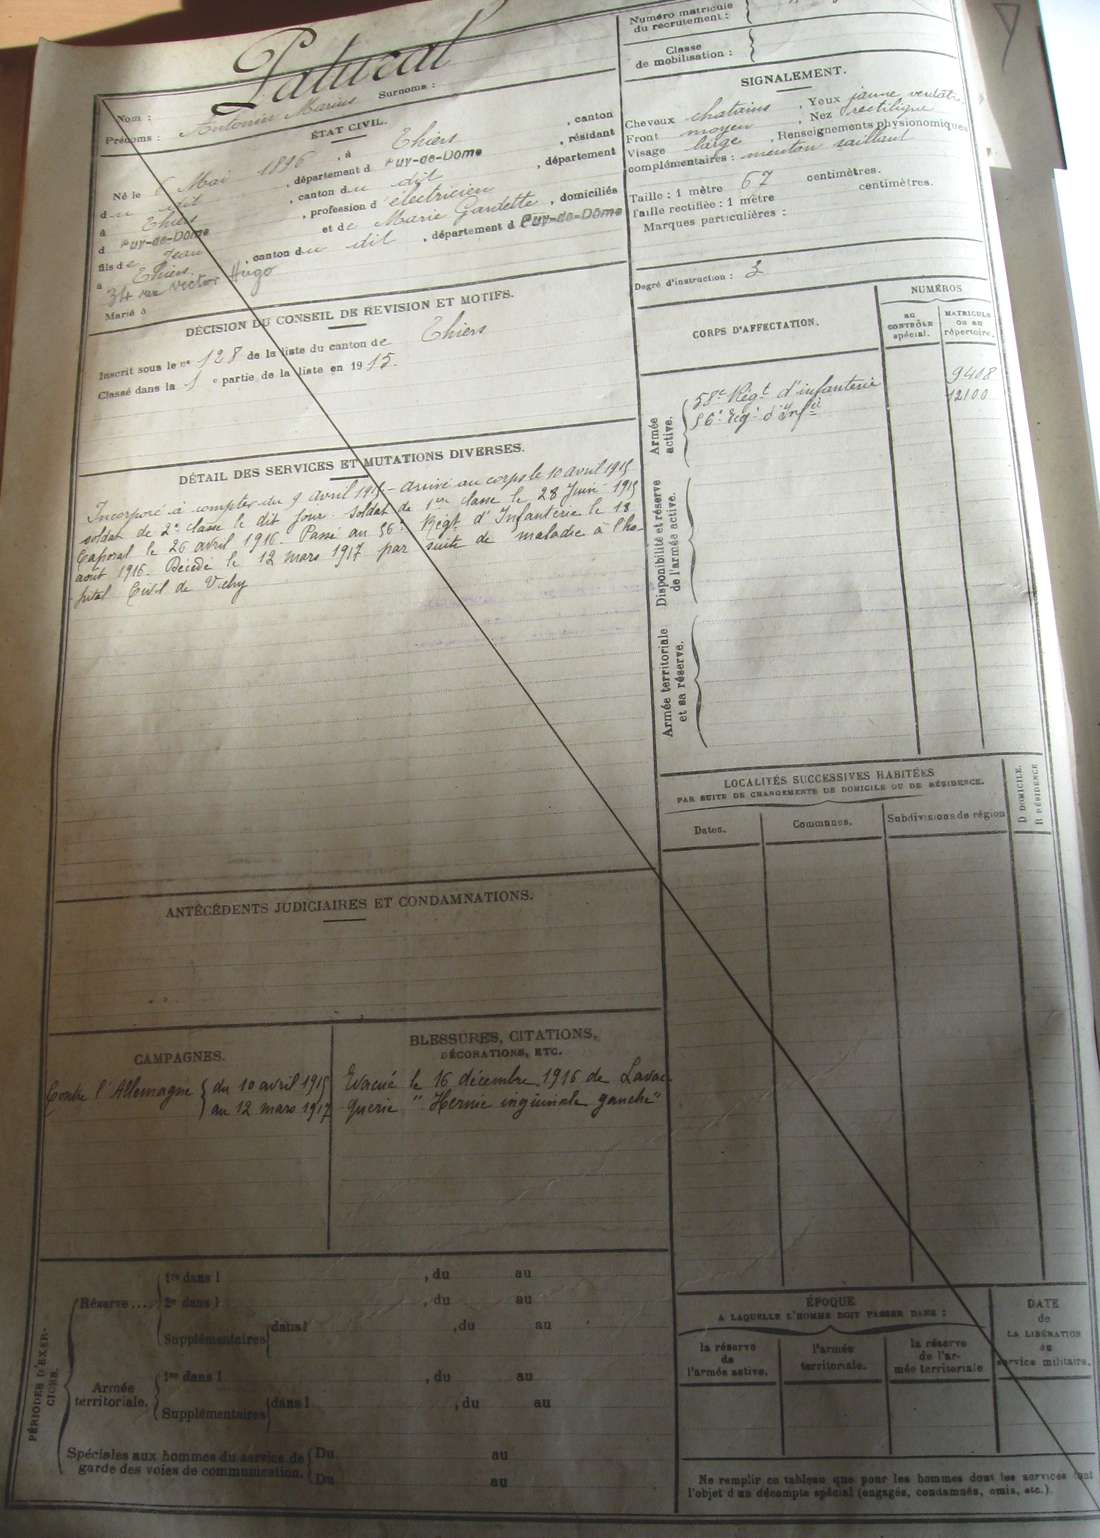 Nom :
Patucal
Prénoms : Antonin Marius Surnoms :
ÉTAT CIVIL.
Né le 6 Mai 1896, à Thiers, canton
du dit, département d Puy-de-Dôme, résidant
à Thiers, canton du dit, département
d Puy-de-Dôme, profession d'électricien
fils de Jean et de Marie Gardette, domiciliés
à Thiers, canton du dit, département d Puy-de-Dôme
34 rue Victor Hugo
Marié à
DÉCISION DU CONSEIL DE REVISION ET MOTIFS.
Inscrit sous le n° 128 de la liste du canton de Thiers
Classé dans la 1e partie de la liste en 1915.
DÉTAIL DES SERVICES ET MUTATIONS DIVERSES.
Incorporé à compter du 9 avril 1915 - arrivé au corps le 10 avril 1915
soldat de 2e classe le dit jour. soldat de 1ère classe le 28 Juin 1915
Caporal le 26 avril 1916 - Passé au 56e Régt d'Infanterie le 18
août 1916 - Décédé le 12 mars 1917 par suite de maladie à l'hô-
pital Civil de Vichy
ANTÉCÉDENTS JUDICIAIRES ET CONDAMNATIONS.
CAMPAGNES.
Contre l'Allemagne { du 10 avril 1915
au 12 mars 1917
BLESSURES, CITATIONS,
DÉCORATIONS, ETC.
Evacué le 16 décembre 1916 de Lavac-
querie "Hernie inguinale gauche"
PÉRIODES D'EXER-
CICES.
Réserve...
1re dans l , du au
2e dans l , du au
Supplémentaires dans l , du au
Armée
territoriale.
1re dans l , du au
Supplémentaires dans l , du au
Spéciales aux hommes du service de
garde des voies de communication.
Du au
Du au
Numéro matricule
du recrutement :
Classe
de mobilisation :
SIGNALEMENT.
Cheveux chatains, Yeux jaune verdâtre,
Front moyen, Nez rectiligne
Visage large, Renseignements physionomiques
complémentaires : menton saillant
Taille : 1 mètre 67 centimètres.
Taille rectifiée : 1 mètre centimètres.
Marques particulières :
Degré d'instruction : 3
CORPS D'AFFECTATION.
NUMÉROS
au
CONTRÔLE
spécial.
MATRICULE
ou au
répertoire.
Armée
active.
58e Régt d'infanterie 9408
56e Rég. d'Inf. 12100
Disponibilité et réserve
de l'armée active.
Armée territoriale
et sa réserve.
LOCALITÉS SUCCESSIVES HABITÉES
PAR SUITE DE CHANGEMENTS DE DOMICILE OU DE RÉSIDENCE.
Dates.
Communes.
Subdivisions de région
D DOMICILE.
R RÉSIDENCE
ÉPOQUE
A LAQUELLE L'HOMME DOIT PASSER DANS :
la réserve
de
l'armée active.
l'armée
territoriale.
la réserve
de l'ar-
mée territoriale
DATE
de
LA LIBÉRATION
du
service militaire.
Ne remplir ce tableau que pour les hommes dont les services font
l'objet d'un décompte spécial (engagés, condamnés, omis, etc.).